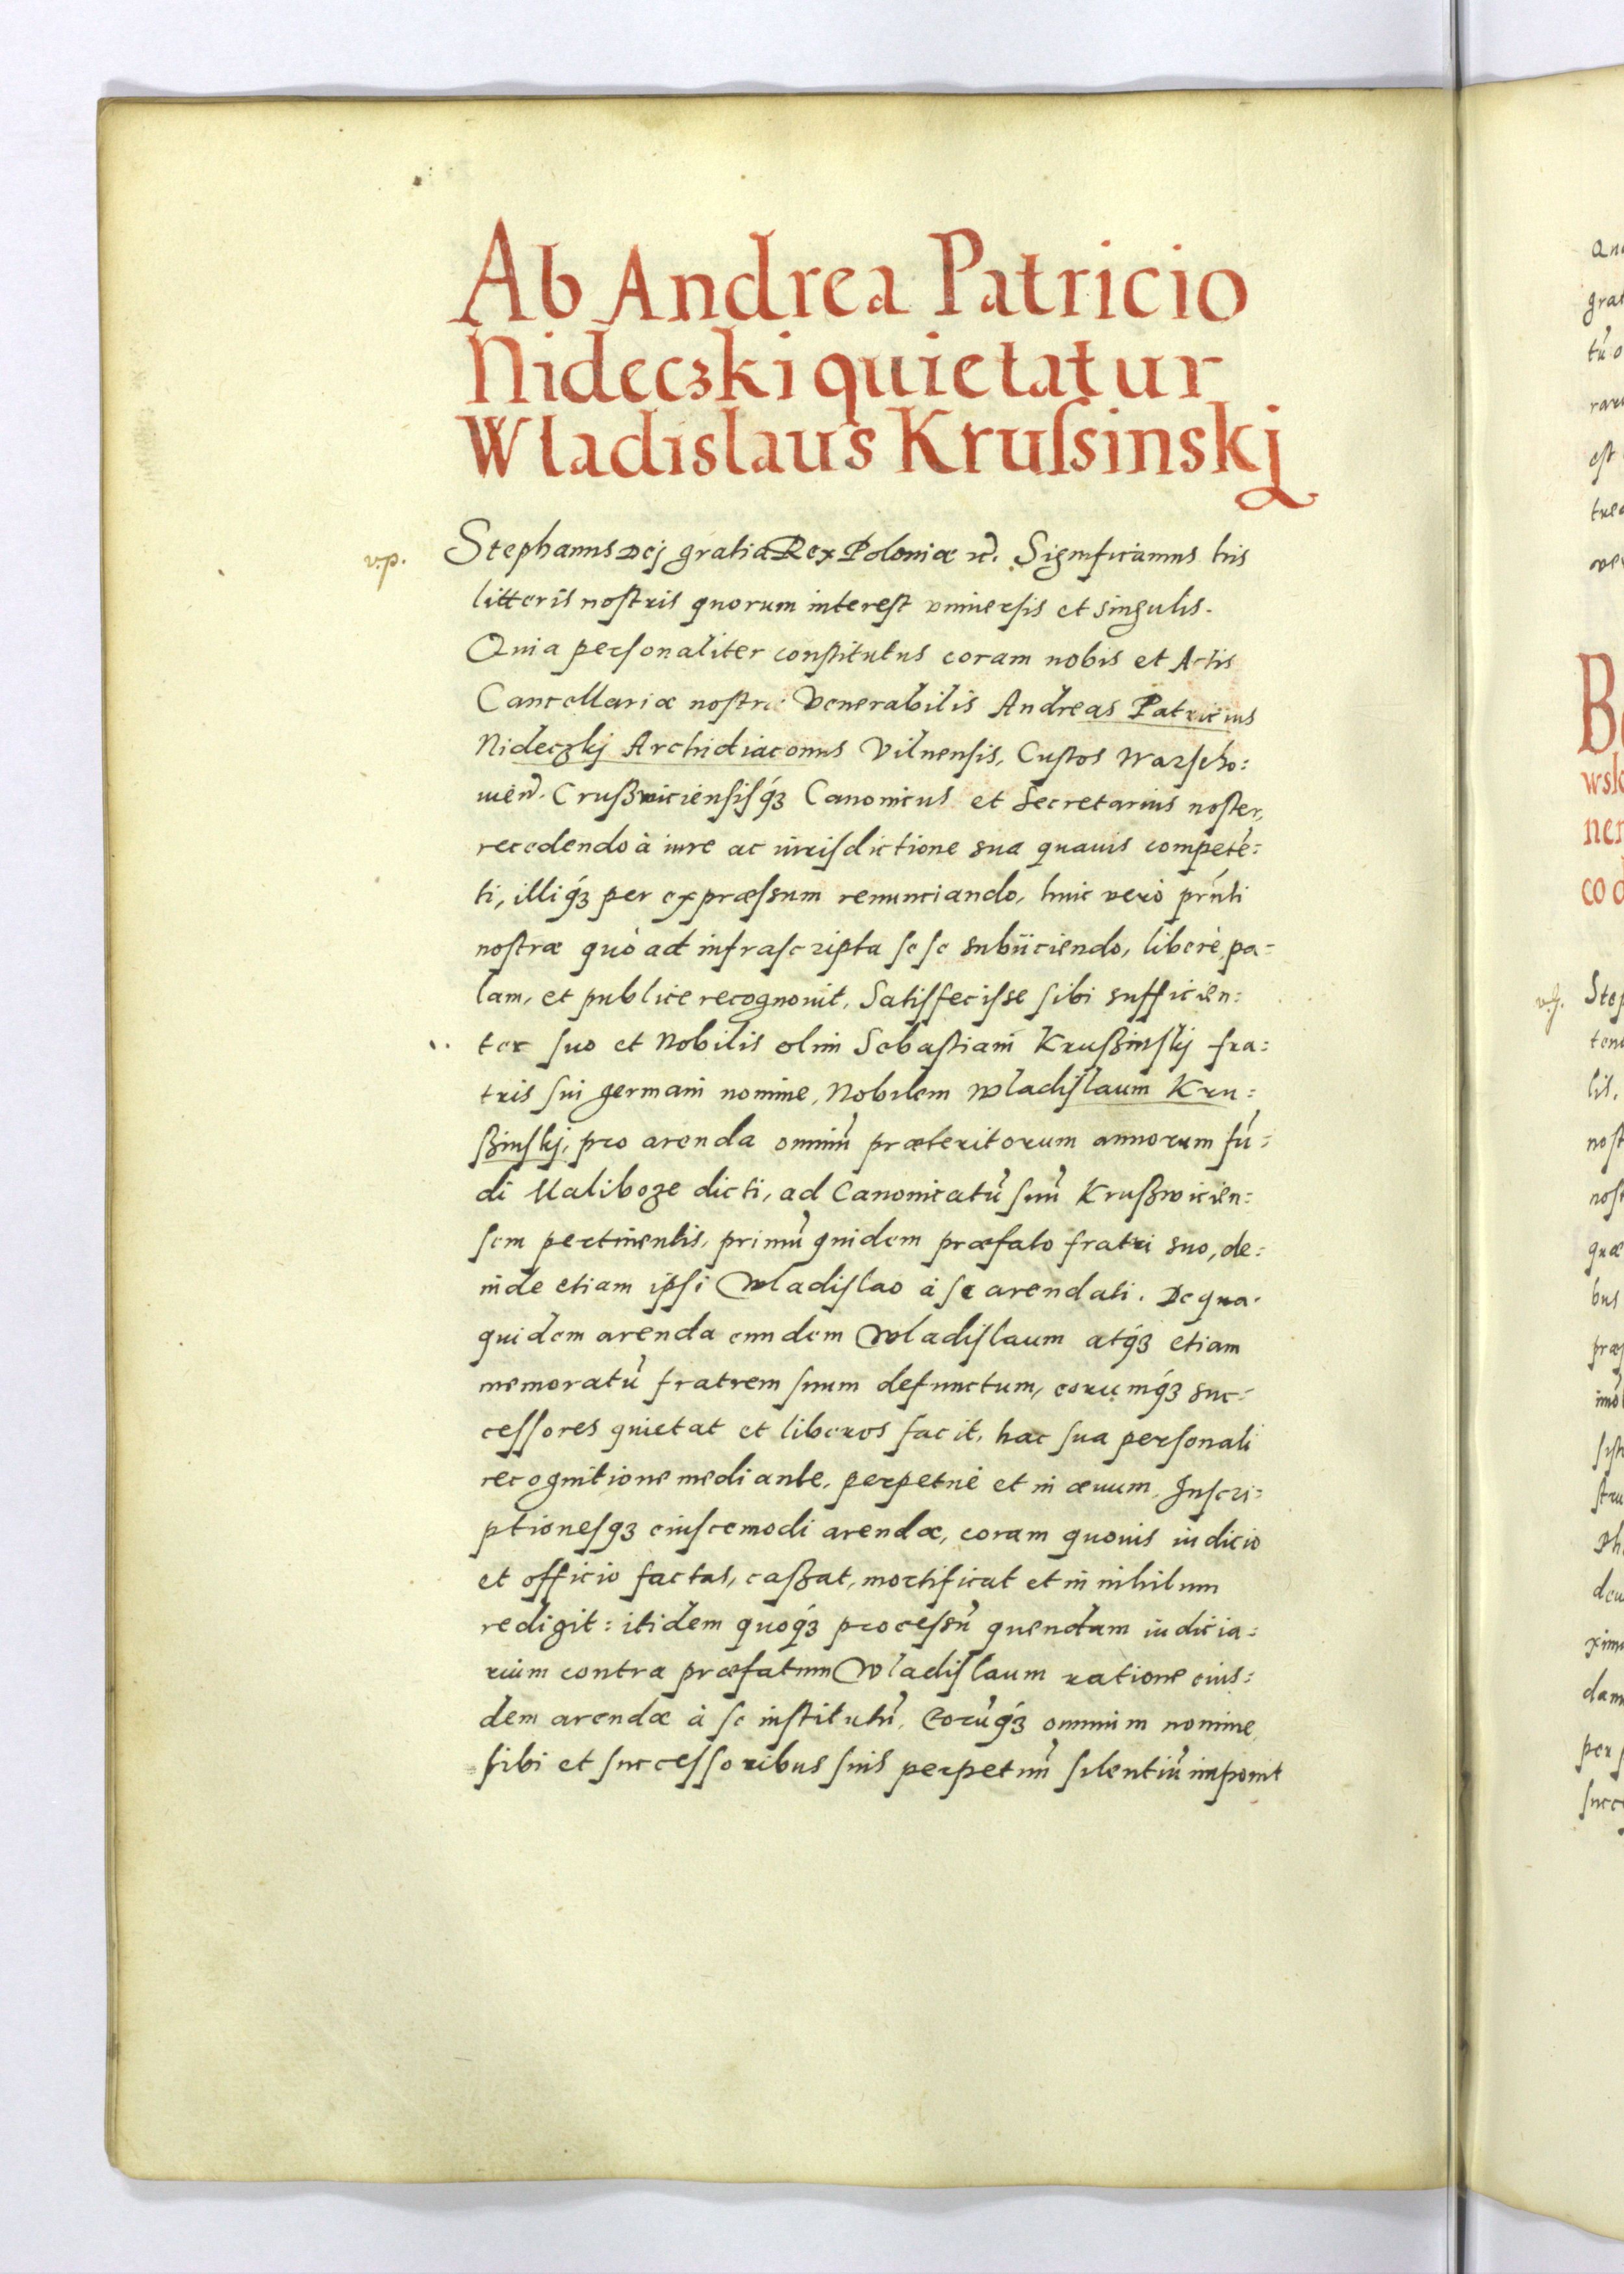 Ab Andrea Patricio
Nideczki quietatur
Wladislaus Kruſsinskj
v.p.
Stephanus Dej gratia Rex Poloniæ &c̃. Significamus his
litteris nostris quorum interest vniuersis et singulis.
Quia personaliter constitutus coram nobis et Actis
Cancellariæ nostræ Venerabilis Andreas Patricius
Nideczkj Archidiaconus Vilnensis, Custos Warscho:
uień. Crußwiciensisq́ꝫ Canonicus et Secretarius noster,
recedendo à iure ac iurisdictione sua quauis competē:
ti, illiq́ꝫ per expræssum renunciando, huic verò pr̃nti
nostræ quò ad infrascripta sese subijciendo, liberè, pa:
lam, et publice recognouit, Satisfecisse sibi sufficien:
ter suo et Nobilis olim Sebastiani Krußinskj fra:
tris sui germani nomine, Nobilem Wladislaum Kru:
ßinskj, pro arenda omniū præteritorum annorum fū:
di Maliboze dicti, ad Canonicatū suū Krußwicien:
sem pertinentis, primū quidem præfato fratri suo, de:
inde etiam ipsi Wladislao à se arendati. De qua
quidem arenda eundem Wladislaum atq́ꝫ etiam
memoratū fratrem suum defunctum, eorumq́ꝫ suc:
cessores quietat et liberos facit, hac sua personali
recognitione mediante, perpetuè et in æuum, Inscri:
ptionesqꝫ eiuscemodi arendæ, coram quouis iudicio
et officio factas, caßat, mortificat et in nihilum
redigit: itidem quoq́ꝫ processū quendam iudicia:
rium contra præfatum Wladislaum ratione eius:
dem arendæ à se institutū, Eorūq́ꝫ omnium nomine
sibi et successoribus suis perpetuū silentiū imponit